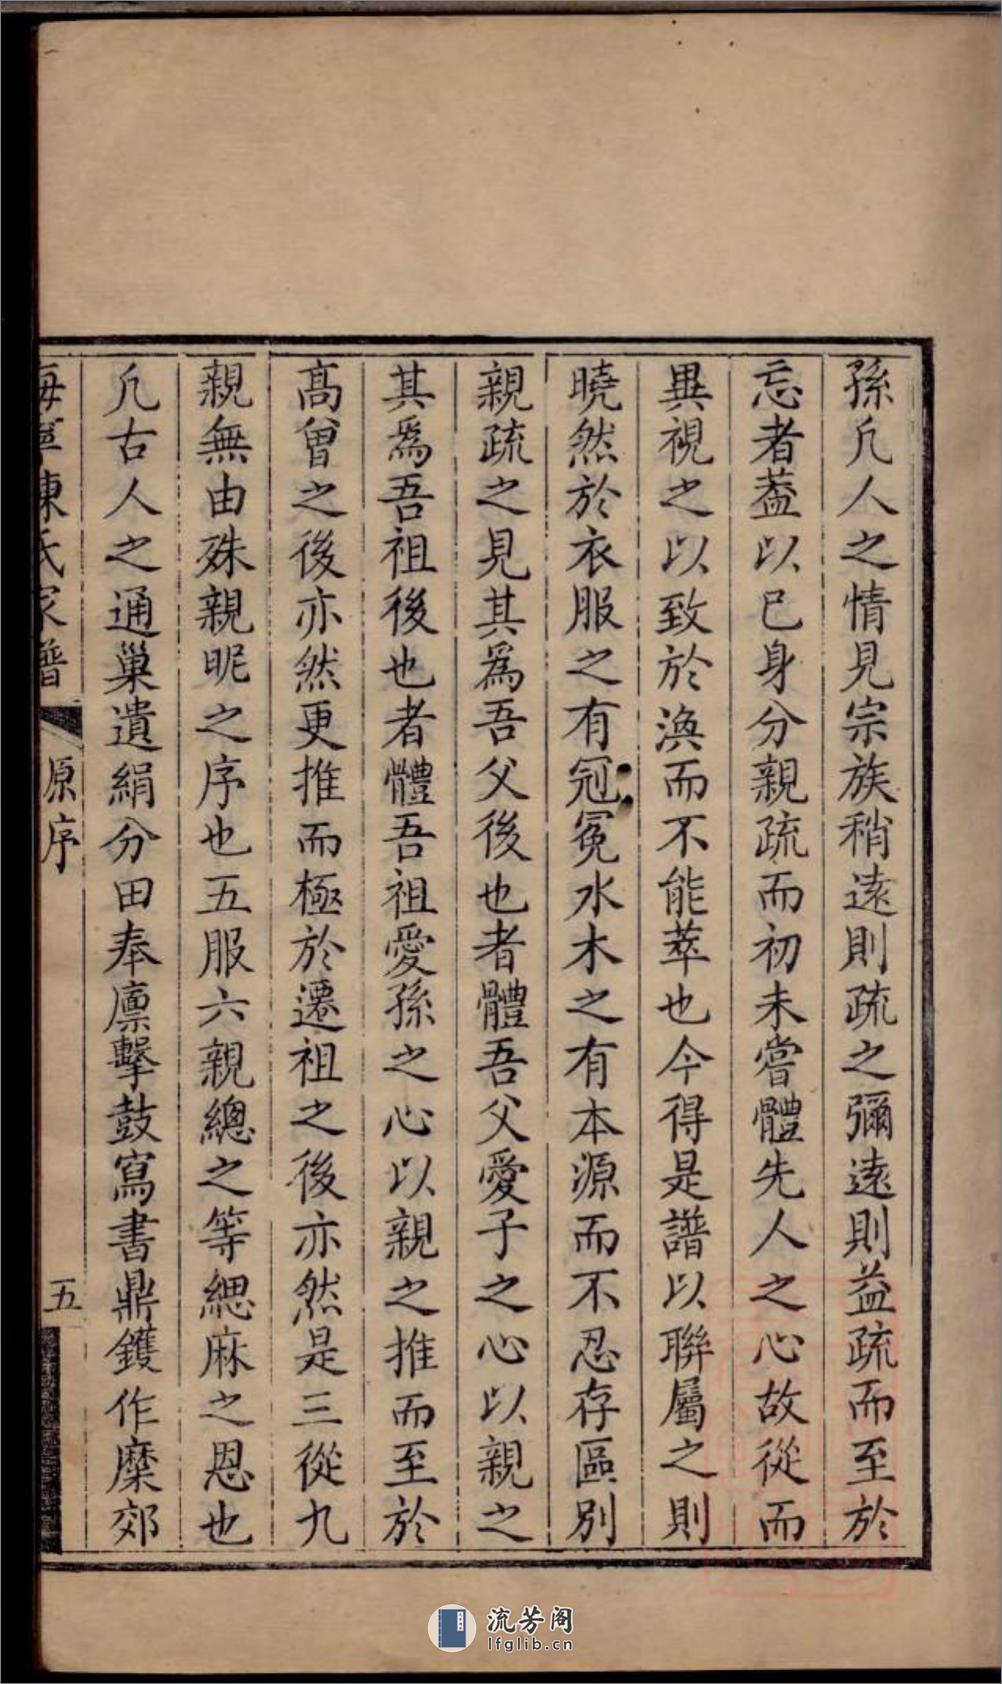 孫凢人之情見宗族稍逺則疏之彌逺則益疏而至於
忘者葢以已身分親疏而初未嘗體先人之心故從而
異視之以致於渙而不能萃也今得是譜以聯屬之則
曉然於衣服之有冠冕水木之有本源而不忍存區別
親疏之見其爲吾父後也者體吾父愛子之心以親之
其爲吾祖後也者體吾祖愛孫之心以親之推而至於
髙曾之後亦然更推而極於遷祖之後亦然是三從九
親無由殊親昵之序也五服六親總之等緦麻之恩也
凢古人之通巢遺絹分田奉廪擊鼓寫書鼎鑊作糜郊
海寧陳氏家譜 原序 五
流芳阁
lfglib.cn